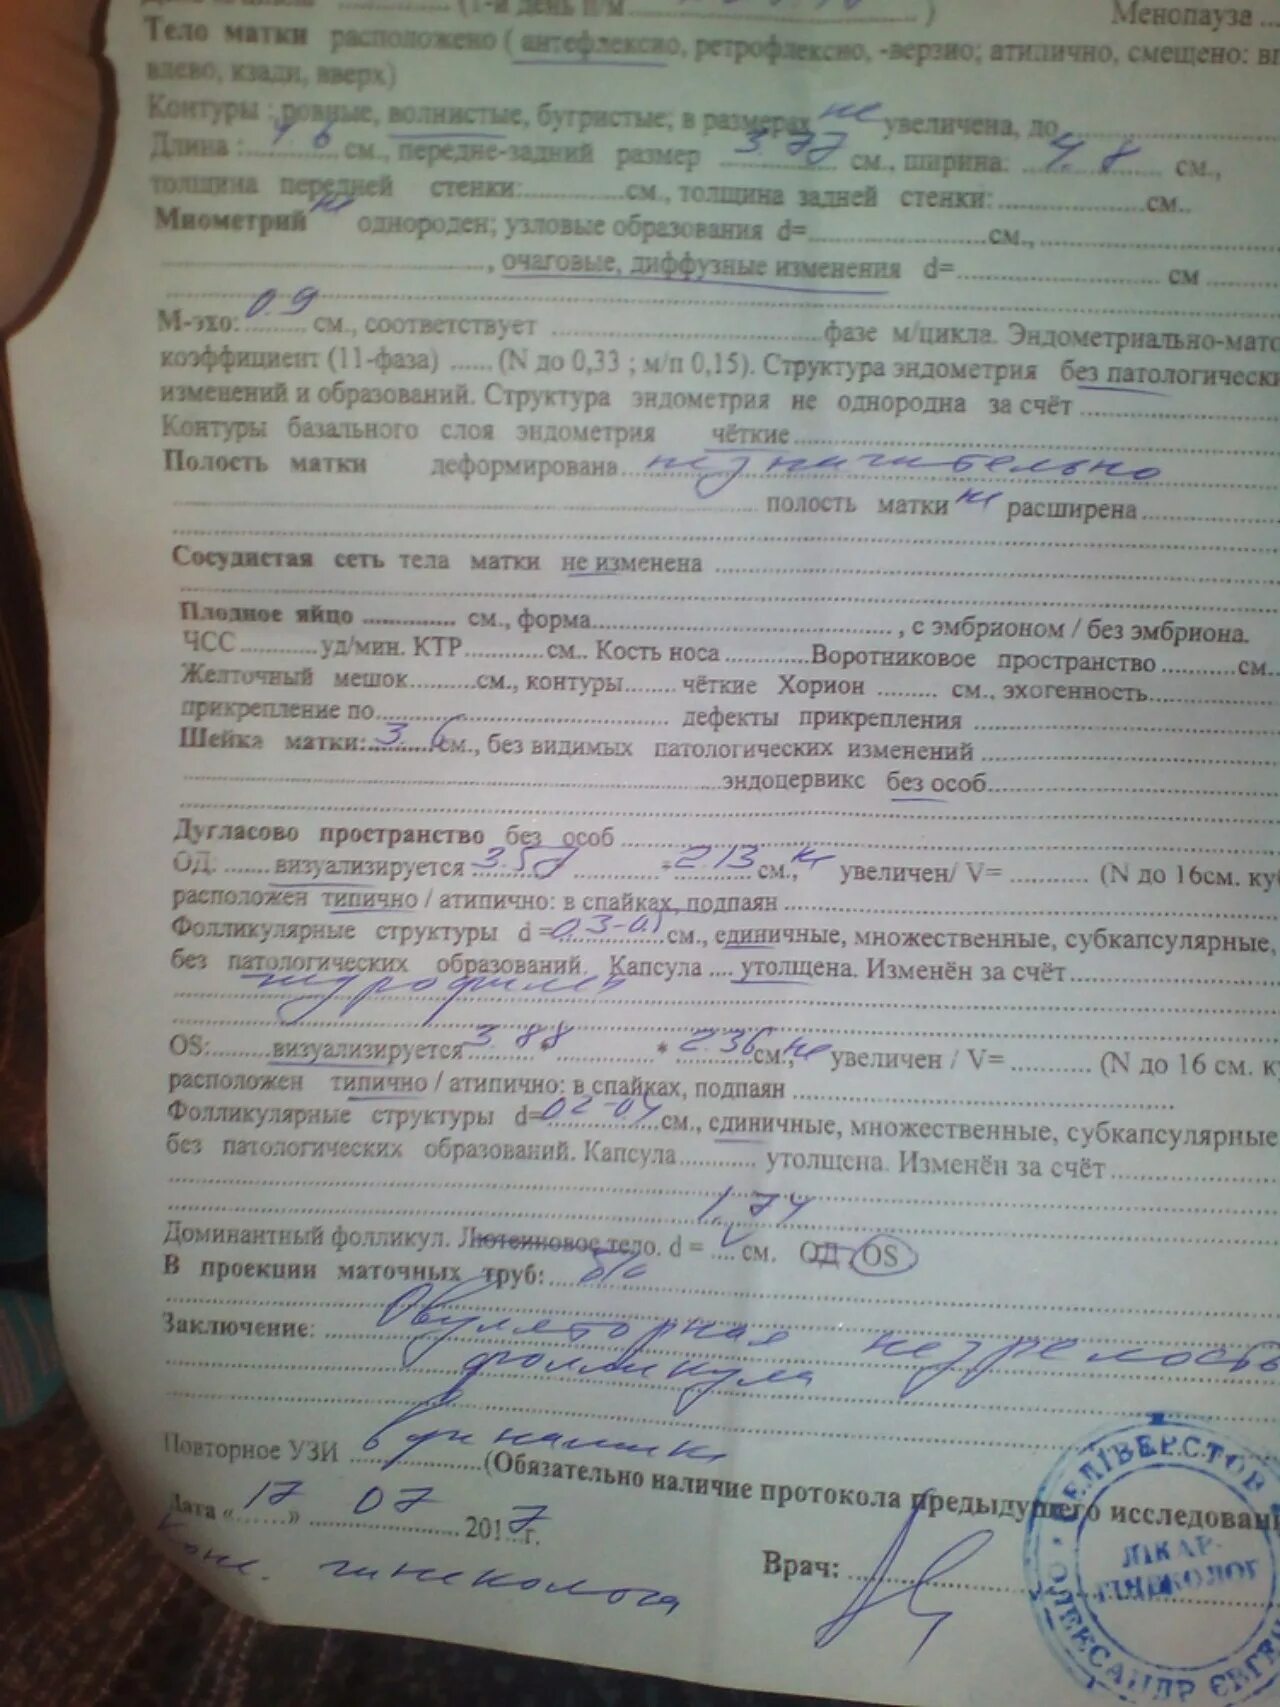 (1-й день п/м ........................) Менопауза ...
Тело матки расположено ( антефлексио, ретрофлексио, -верзио; атипично, смещено:
влево, кзади, вверх)
Контуры : ровные, волнистые, бугристые; в размерах не увеличена, до
Длина : см., передне-задний размер 3.77 см., ширина: 4.8 см.,
толщина передней стенки:............см., толщина задней стенки:..................см..
Миометрий не однороден; узловые образования d=......................см.,
, очаговые, диффузные изменения d=......................... см
М-эхо: 0.9 см., соответствует ................................ фазе м/цикла. Эндометриально-мато
коэффициент (11-фаза) ...... (N до 0,33 ; м/п 0,15). Структура эндометрия без патологически
изменений и образований. Структура эндометрия не однородна за счёт
Контуры базального слоя эндометрия чёткие
Полость матки деформирована незначительно
полость матки не расширена
Сосудистая сеть тела матки не изменена
Плодное яйцо ............. см., форма....................................., с эмбрионом / без эмбриона.
ЧСС...........уд/мин. КТР...........см.. Кость носа...........Воротниковое пространство..........см..
Желточный мешок.........см., контуры....... чёткие Хорион ........ см., эхогенность
прикрепление по..................................... дефекты прикрепления
Шейка матки: 3.6 см., без видимых патологических изменений
эндоцервикс без особ
Дугласово пространство без особ
ОД: ....... визуализируется 3.57 * 2.13 см., не увеличен/ V= ........... (N до 16см. ку
расположен типично / атипично: в спайках, подпаян
Фолликулярные структуры d = 0.3- см., единичные, множественные, субкапсулярные,
без патологических образований. Капсула .... утолщена. Изменён за счёт
OS:.........визуализируется 3.88 * * 2.36 см., не увеличен / V= ........... (N до 16 см. к
расположен типично / атипично: в спайках, подпаян
Фолликулярные структуры d= см., единичные, множественные, субкапсулярные
без патологических образований. Капсула........... утолщена. Изменён за счёт
1.74
Доминантный фолликул. Лютеиновое тело. d = .... см. ОД OS
В проекции маточных труб: б/о
Заключение: Овуляторная незрелость
фолликула
Повторное УЗИ в динамике (Обязательно наличие протокола предыдущего исследован
Дата «17» 07 2017г.
гинеколога
Врач:
СЕЛІВЕРСТОВ
ОЛЕКСАНДР ЄВГЕН
ЛІКАР-
ГІНЕКОЛОГ